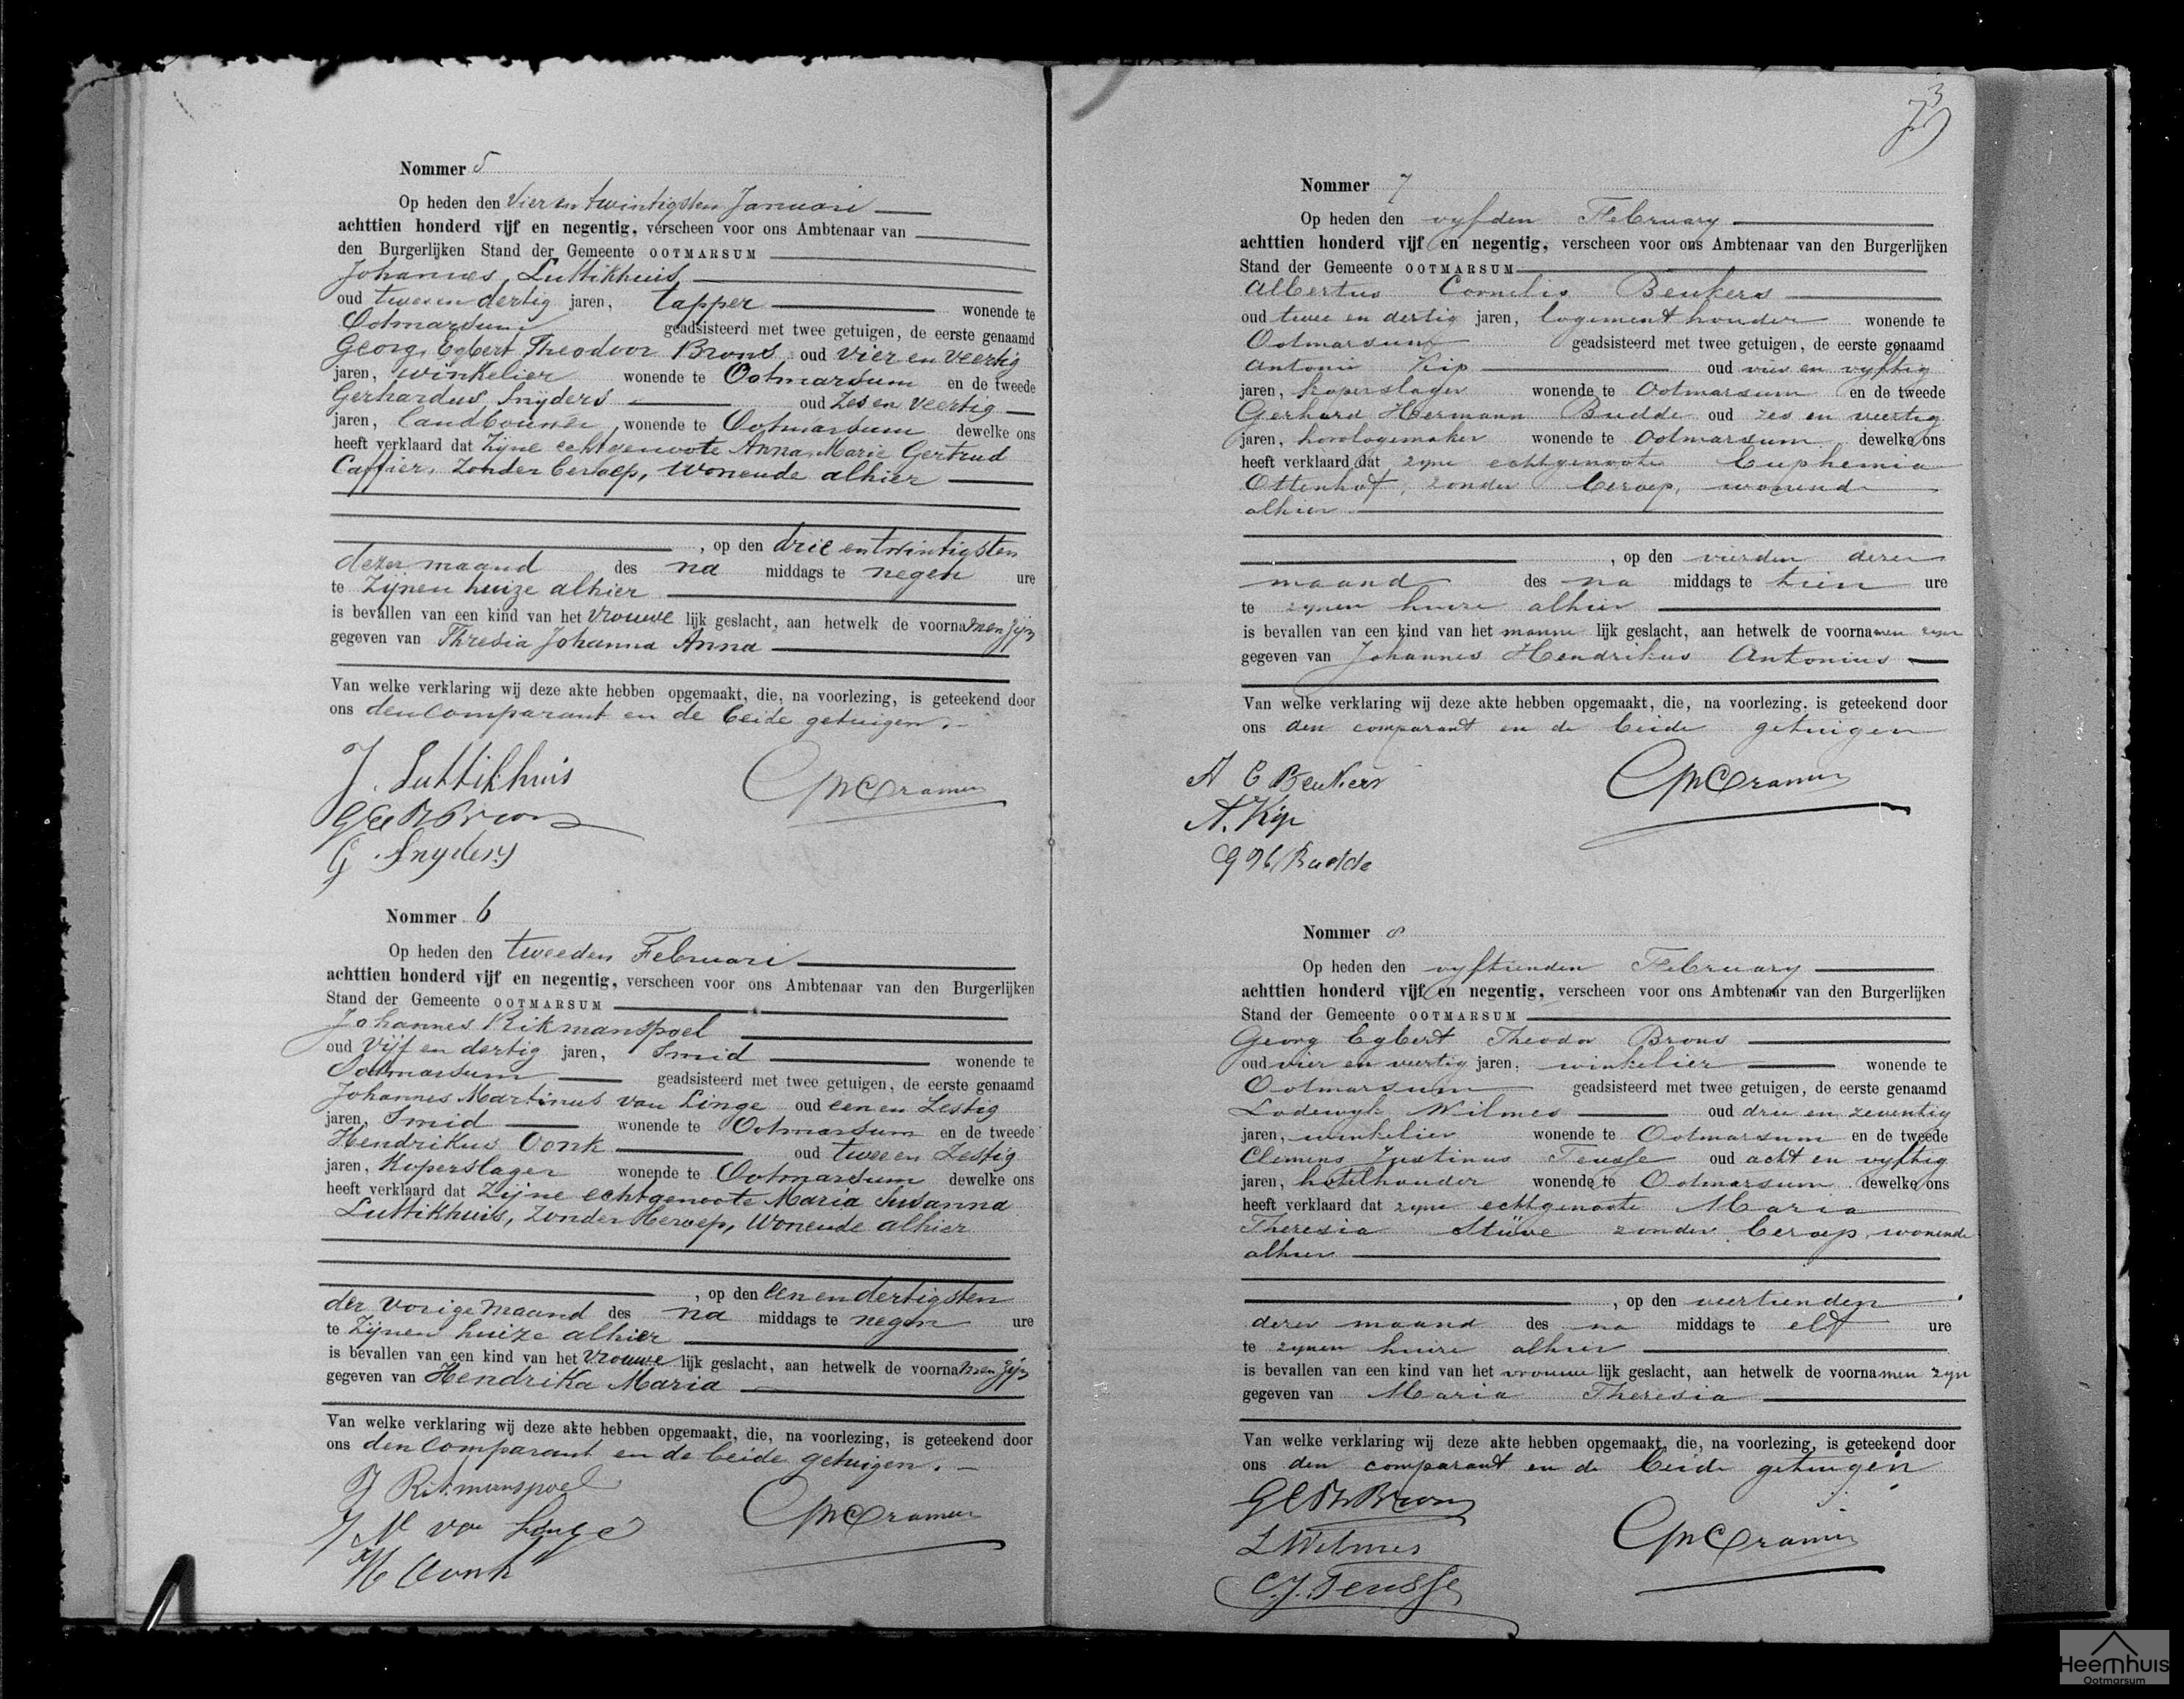 Nommer 5
Op heden den Vier en twintigsten Januari
achttien honderd vijf en negentig, verscheen voor ons Ambtenaar van
den Burgerlijken Stand der Gemeente OOTMARSUM
Johannes Luttikhuis
oud twee en dertig jaren, tapper wonende te
Ootmarsum geadsisteerd met twee getuigen, de eerste genaamd
Georg Egbert Theodoor Brons oud vier en veertig
jaren, winkelier wonende te Ootmarsum en de tweede
Gerhardus Snyders oud Zes en veertig
jaren, landbouwer wonende te Ootmarsum dewelke ons
heeft verklaard dat Zijne echtgenoote Anna Marie Gertrud
Caffier, Zonder beroep, wonende alhier
, op den drie en twintigsten
dezer maand des na middags te negen ure
te Zijnen huize alhier
is bevallen van een kind van het vrouwe lijk geslacht, aan hetwelk de voornamen zijn
gegeven van Thresia Johanna Anna
Van welke verklaring wij deze akte hebben opgemaakt, die, na voorlezing, is geteekend door
ons den comparant en de beide getuigen.
J. Luttikhuis
GETh Brons
G. Snyders
Cramer
Nommer 6
Op heden den tweeden Februari
achttien honderd vijf en negentig, verscheen voor ons Ambtenaar van den Burgerlijken
Stand der Gemeente OOTMARSUM
Johannes Rikmanspoel
oud Vijf en dertig jaren, Smid wonende te
Ootmarsum geadsisteerd met twee getuigen, de eerste genaamd
Johannes Martinus van Linge oud een en Zestig
jaren, Smid wonende te Ootmarsum en de tweede
Hendrikus Oonk oud twee en Zestig
jaren, Koperslager wonende te Ootmarsum dewelke ons
heeft verklaard dat Zijne echtgenoote Maria Susanna
Luttikhuis, Zonder Beroep, Wonende alhier
, op den een en dertigsten
der vorige maand des na middags te negen ure
te Zijnen huize alhier
is bevallen van een kind van het vrouwe lijk geslacht, aan hetwelk de voornamen zijn
gegeven van Hendrika Maria
Van welke verklaring wij deze akte hebben opgemaakt, die, na voorlezing, is geteekend door
ons den comparant en de beide getuigen.
J Rikmanspoel
J M van Linge
H Oonk
Cramer
3
Nommer 7
Op heden den vyfden February
achttien honderd vijf en negentig, verscheen voor ons Ambtenaar van den Burgerlijken
Stand der Gemeente OOTMARSUM
Albertus Cornelis Beukers
oud twee en dertig jaren, logementhouder wonende te
Ootmarsum geadsisteerd met twee getuigen, de eerste genaamd
Antonie Kip oud vier en vyftig
jaren, koperslager wonende te Ootmarsum en de tweede
Gerhard Hermann Budde oud zes en veertig
jaren, horologemaker wonende te Ootmarsum dewelke ons
heeft verklaard dat zyne echtgenoote Euphemia
Ottenhof, zonder beroep, wonende
alhier
, op den vierden dezer
maand des na middags te tien ure
te zynen huize alhier
is bevallen van een kind van het manne lijk geslacht, aan hetwelk de voornamen zyn
gegeven van Johannes Hendrikus Antonius
Van welke verklaring wij deze akte hebben opgemaakt, die, na voorlezing, is geteekend door
ons den comparant en de beide getuigen
A C Beukers
A. Kip
G H Budde
Cramer
Nommer 8
Op heden den vyftienden February
achttien honderd vijf en negentig, verscheen voor ons Ambtenaar van den Burgerlijken
Stand der Gemeente OOTMARSUM
Georg Egbert Theodor Brons
oud vier en veertig jaren, winkelier wonende te
Ootmarsum geadsisteerd met twee getuigen, de eerste genaamd
Lodewyk Wilmes oud drie en zeventig
jaren, winkelier wonende te Ootmarsum en de tweede
Clemens Justinus Teusse oud acht en vyftig
jaren, hotelhouder wonende te Ootmarsum dewelke ons
heeft verklaard dat zyne echtgenoote Maria
Theresia Stüve zonder beroep, wonende
alhier
, op den veertienden
dezer maand des na middags te elf ure
te zynen huize alhier
is bevallen van een kind van het vrouwe lijk geslacht, aan hetwelk de voornamen zyn
gegeven van Maria Theresia
Van welke verklaring wij deze akte hebben opgemaakt, die, na voorlezing, is geteekend door
ons den comparant en de beide getuigen
GETh Brons
L Wilmes
C. J. Teusse
Cramer
Heemhuis
Ootmarsum